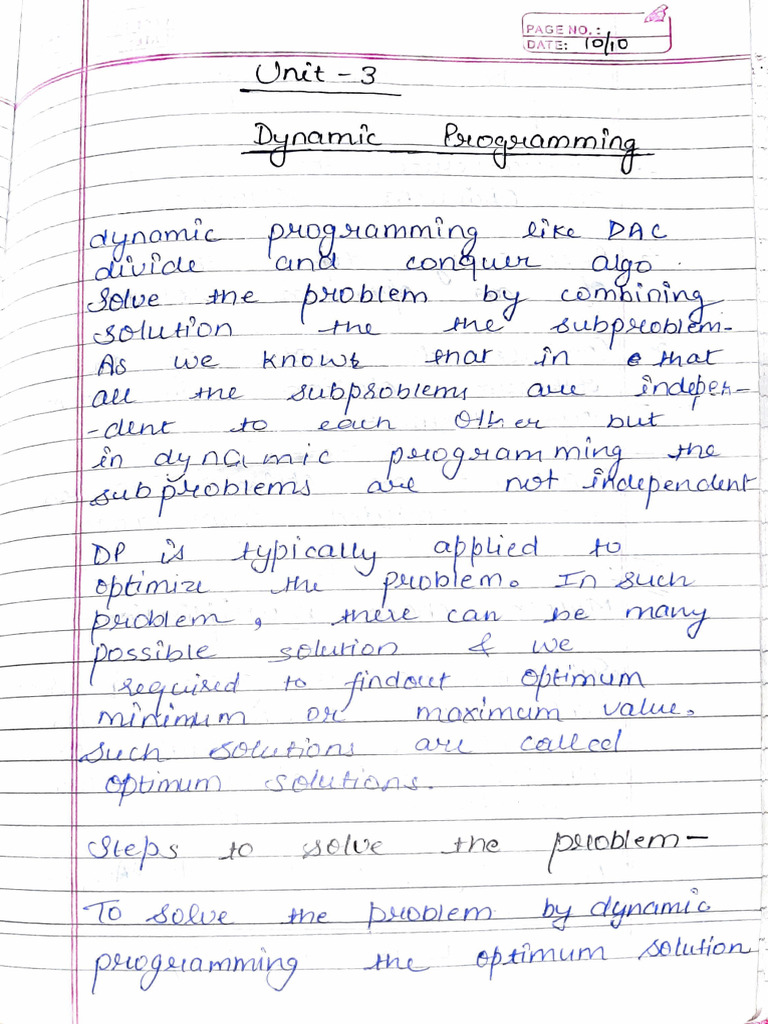 PAGE NO.:
DATE: 10/10
Unit - 3
Dynamic Programming
dynamic programming like DAC
divide and conquer algo.
Solve the problem by combining
solution the the subproblem-
As we know that in that
all the subproblems are indepen-
-dent to each other but
in dynamic programming the
subproblems are not independent
DP is typically applied to
optimize the problem. In such
problem, there can be many
possible solution & we
required to findout optimum
minimum or maximum value.
Such solutions are called
optimum solutions.
Steps to solve the problem-
To solve the problem by dynamic
programming the optimum solution